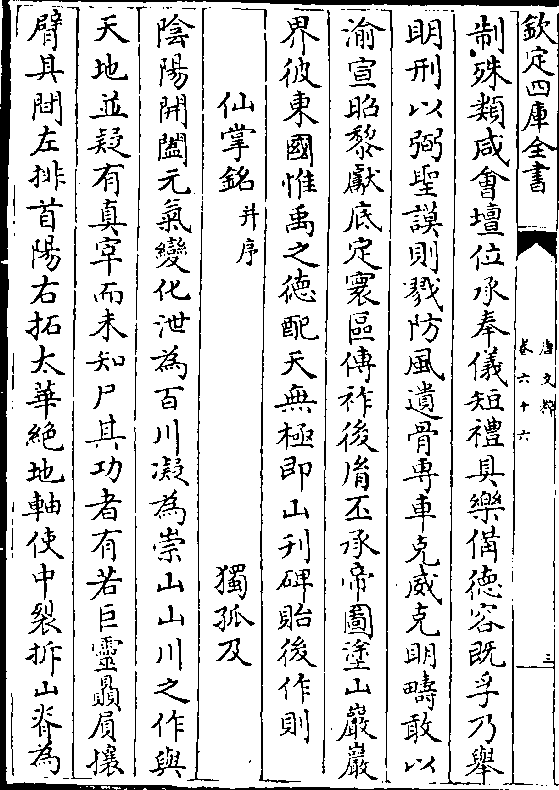 欽定四庫全書
唐文粹
卷六十六
三
制殊類咸會壇位承奉儀短禮具樂備德容既孚乃舉
明刑以弼聖謨則戮防風遺骨専車克威克明疇敢以
渝宣昭黎獻底定寰區傳祚後𦙍丕承帝圖塗山巖巖
界彼東國惟禹之徳配天無極即山刋碑貽後作則
仙掌銘并序 獨孤及
陰陽開闔元氣變化泄為百川凝為崇山山川之作與
天地並疑有真宰而未知尸其功者有若巨靈贔屓攘
臂其間左排首陽右拓太華絶地軸使中裂拆山脊為